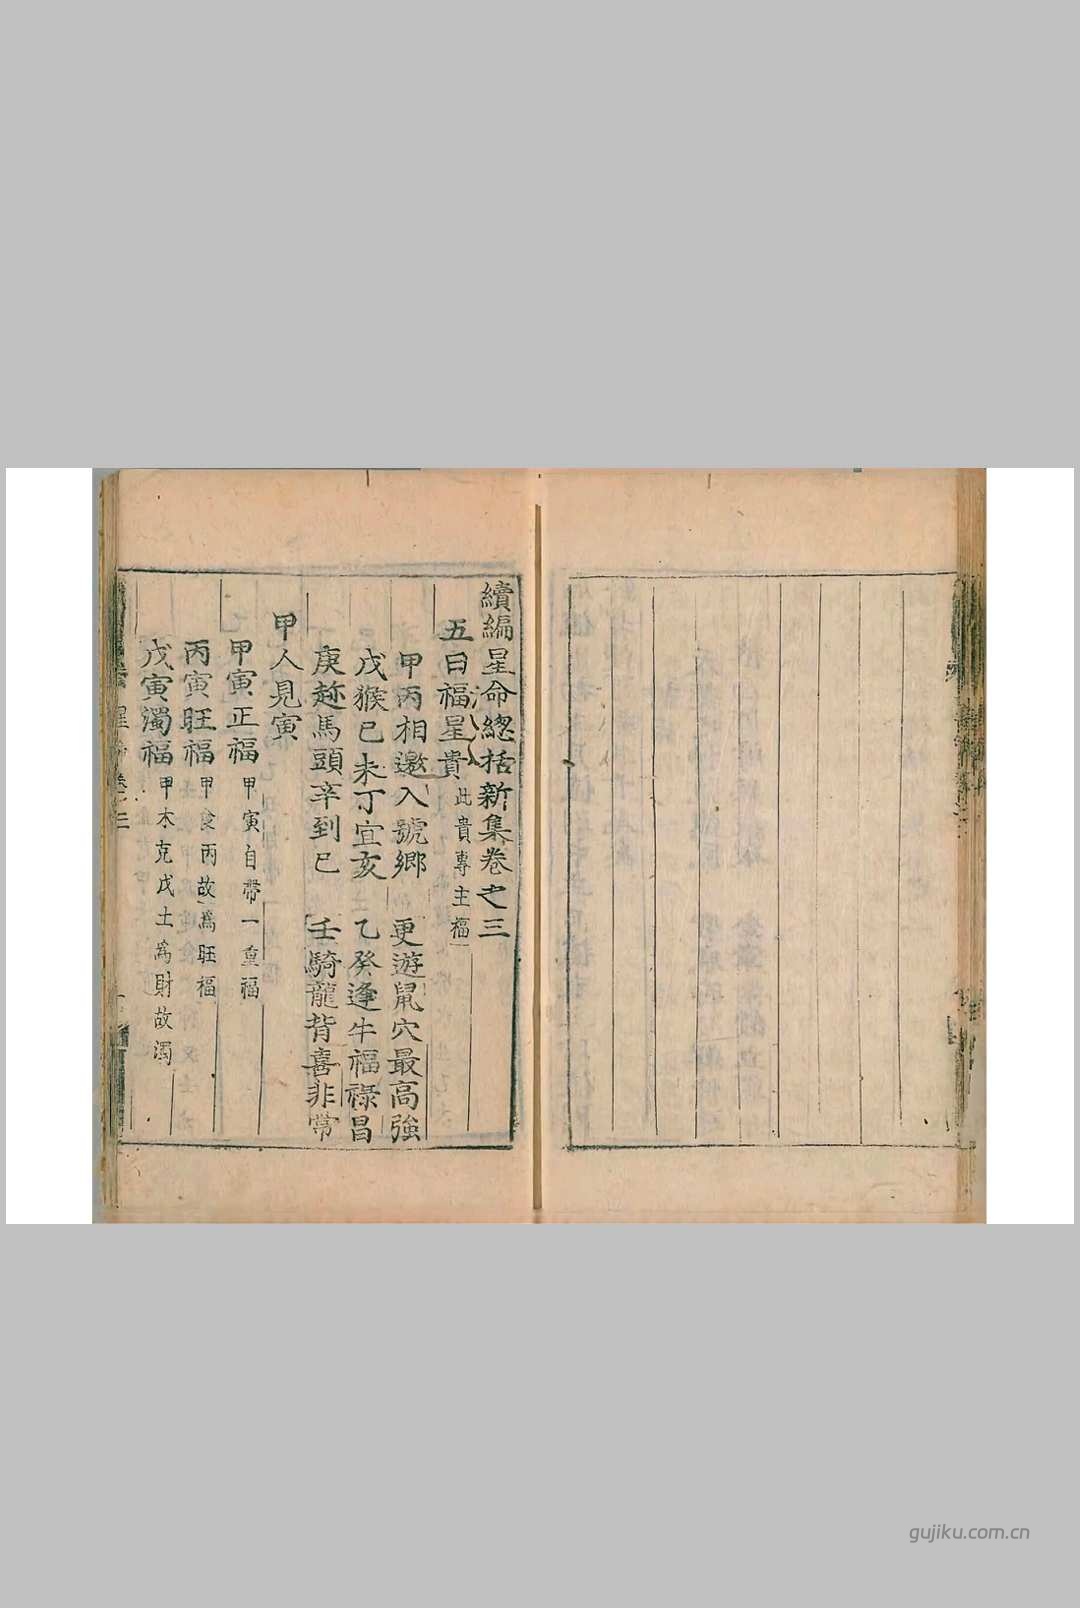 續編星命總括新集卷之三
五曰福星貴此貴專主福
甲丙相邀入號鄉 更遊鼠穴最高強
戊猴已未丁宜亥 乙癸逢牛福祿昌
庚趂馬頭辛到巳 壬騎龍背喜非常
甲人見寅
甲寅正福甲寅自帶一重福
丙寅旺福甲食丙故為旺福
戊寅濁福甲木克戊土為財故濁
gujiku.com.cn